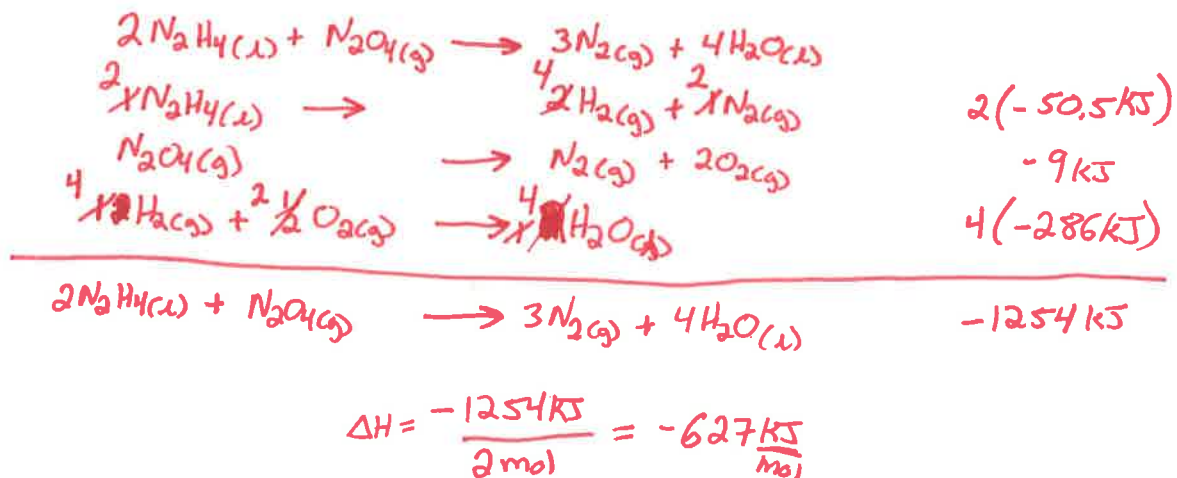 2N₂H₄(l) + N₂O₄(g) → 3N₂(g) + 4H₂O(l)
2 1N₂H₄(l) → 4 2H₂(g) + 2 1N₂(g) 2(-50.5kJ)
N₂O₄(g) → N₂(g) + 2O₂(g) -9kJ
4 1H₂(g) + 2 1/2 O₂(g) → 1 4 H₂O(l) 4(-286kJ)
2N₂H₄(l) + N₂O₄(g) → 3N₂(g) + 4H₂O(l) -1254kJ
ΔH = -1254kJ / 2mol = -627 kJ/mol